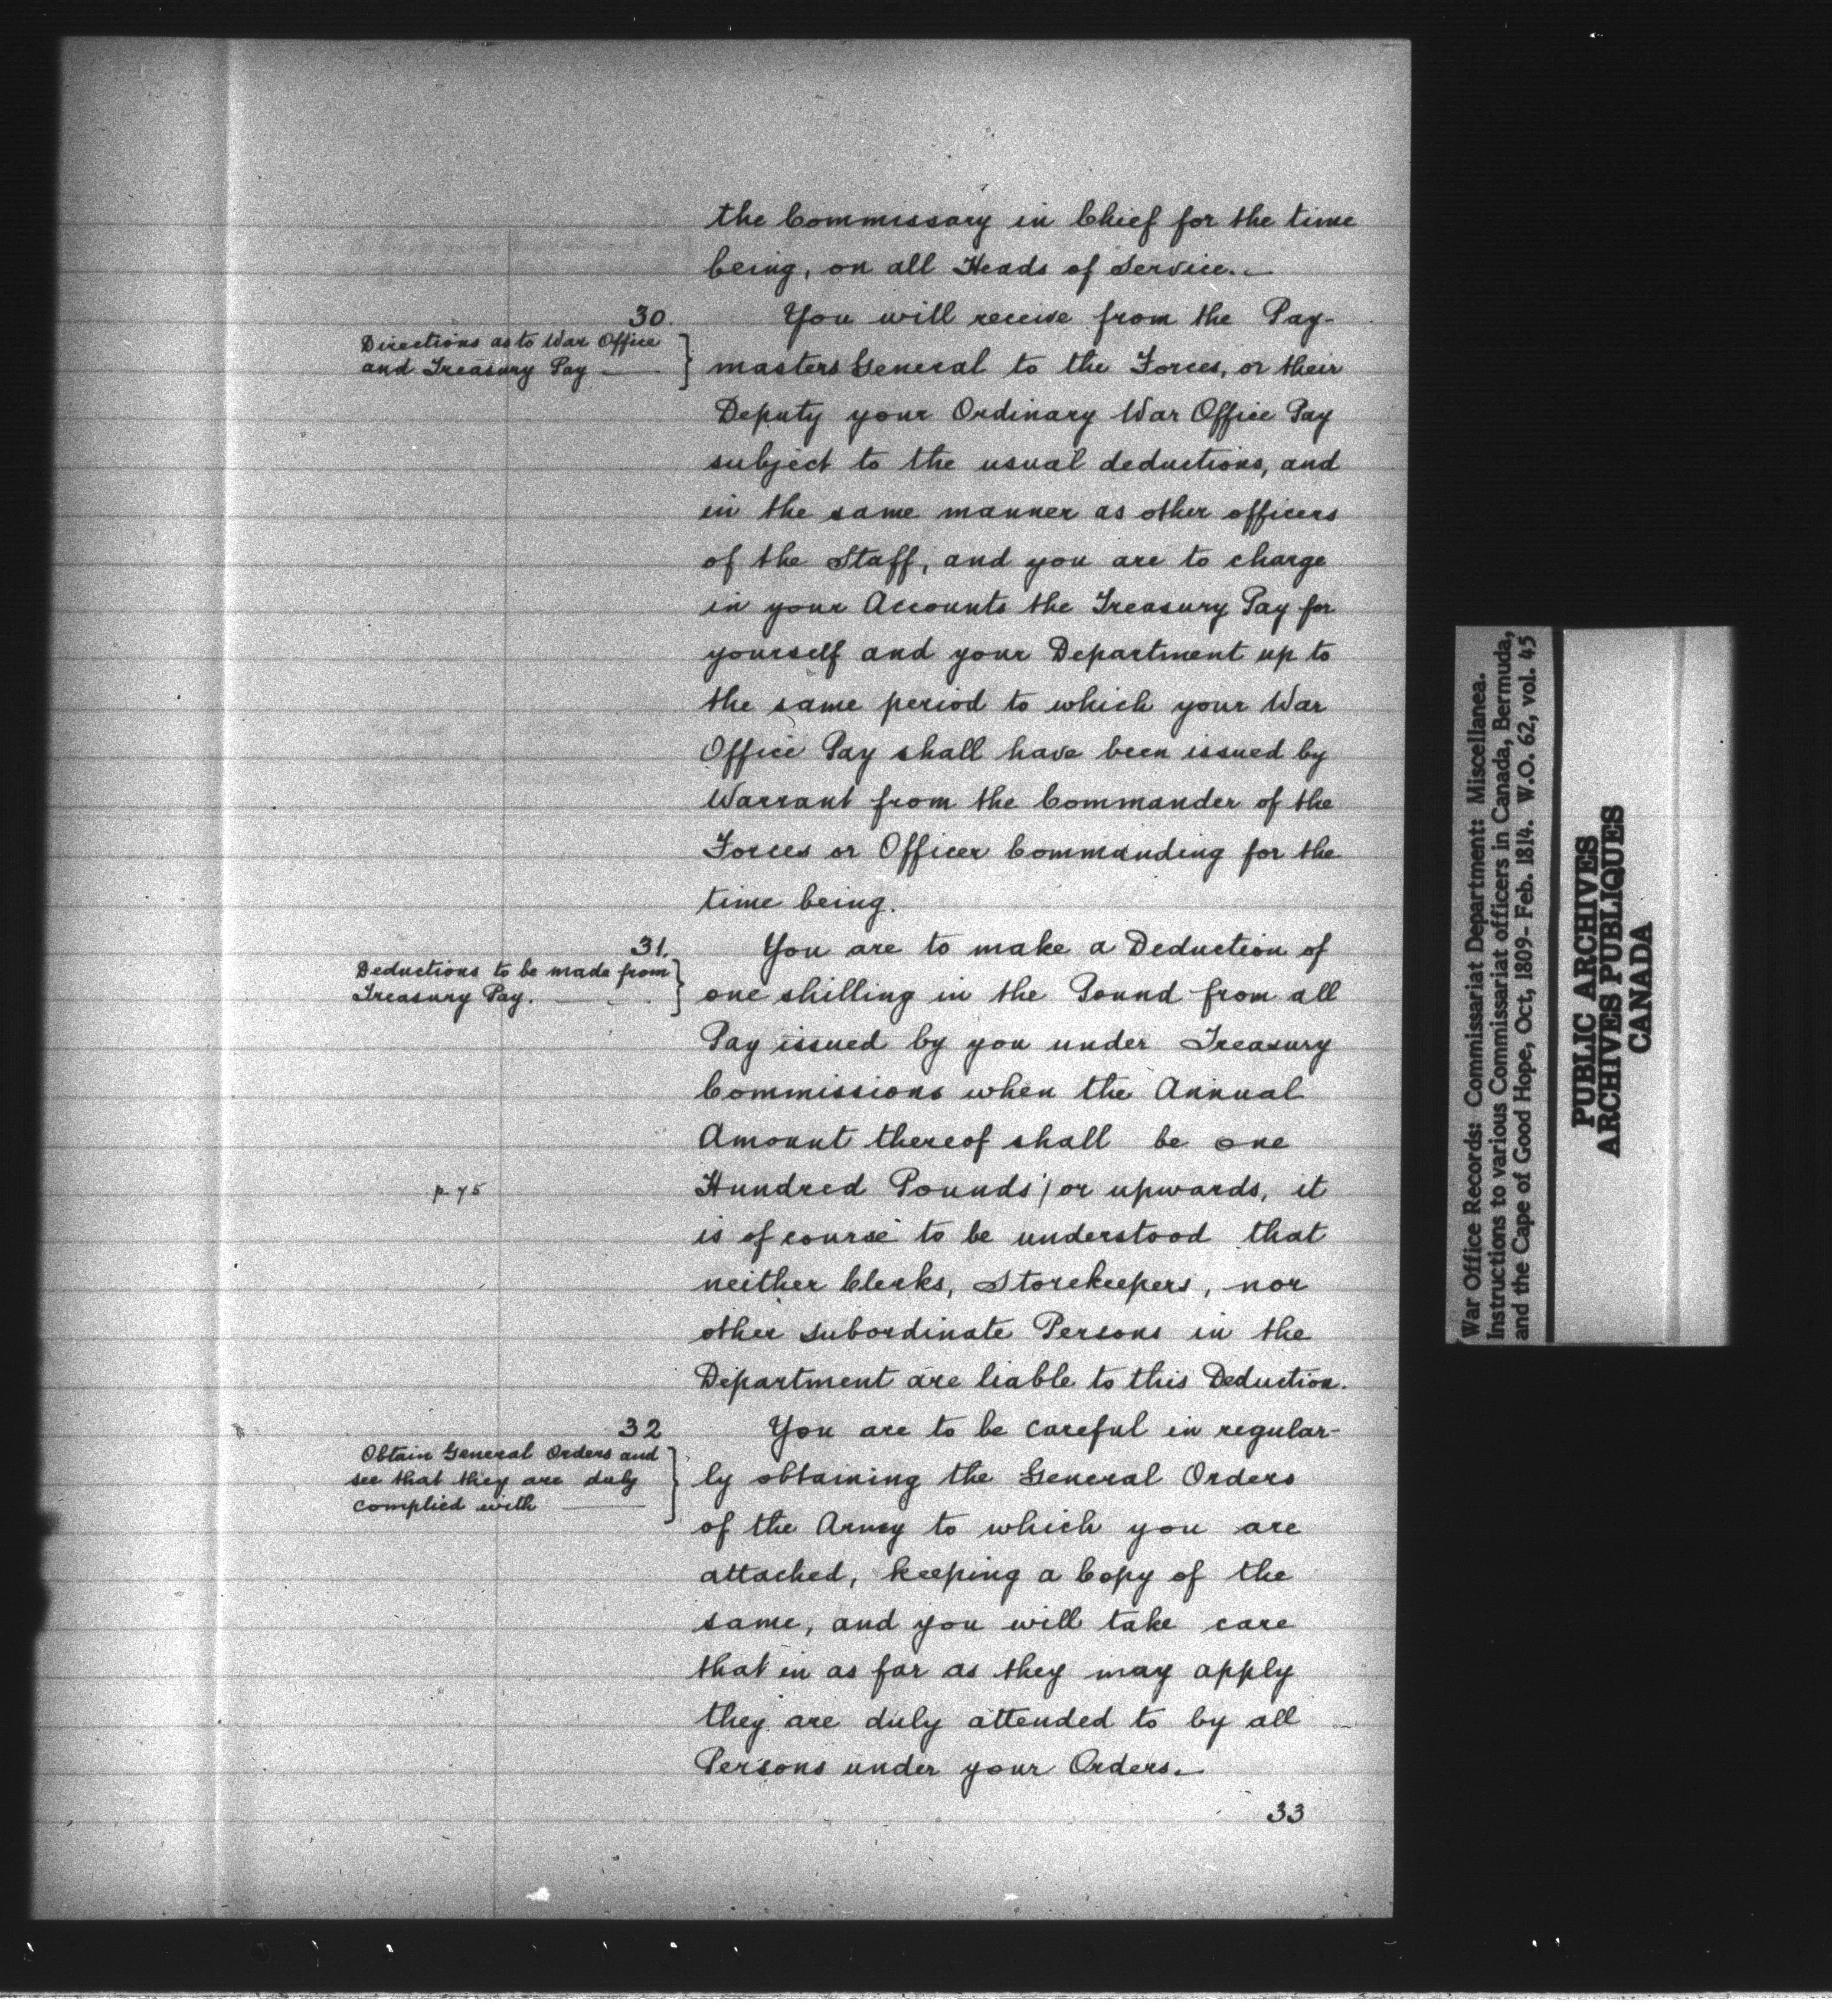 the Commissary in Chief for the time
being, on all Heads of Service.
30.
Directions as to War Office
and Treasury Pay
You will receive from the Pay-
masters General to the Forces, or their
Deputy your Ordinary War Office Pay
subject to the usual deductions, and
in the same manner as other officers
of the Staff, and you are to charge
in your Accounts the Treasury Pay for
yourself and your Department up to
the same period to which your War
Office Pay shall have been issued by
Warrant from the Commander of the
Forces or Officer Commanding for the
time being.
31.
Deductions to be made from
Treasury Pay.
You are to make a Deduction of
one shilling in the Pound from all
Pay issued by you under Treasury
Commissions when the Annual
Amount thereof shall be one
p 75
Hundred Pounds / or upwards, it
is of course to be understood that
neither Clerks, Storekeepers, nor
other subordinate Persons in the
Department are liable to this Deduction.
32
Obtain General Orders and
see that they are duly
complied with
You are to be careful in regular-
ly obtaining the General Orders
of the Army to which you are
attached, keeping a Copy of the
same, and you will take care
that in as far as they may apply
they are duly attended to by all
Persons under your Orders.
33
War Office Records: Commissariat Department: Miscellanea.
Instructions to various Commissariat officers in Canada, Bermuda,
and the Cape of Good Hope, Oct, 1809- Feb. 1814. W.O. 62, vol. 45
PUBLIC ARCHIVES
ARCHIVES PUBLIQUES
CANADA